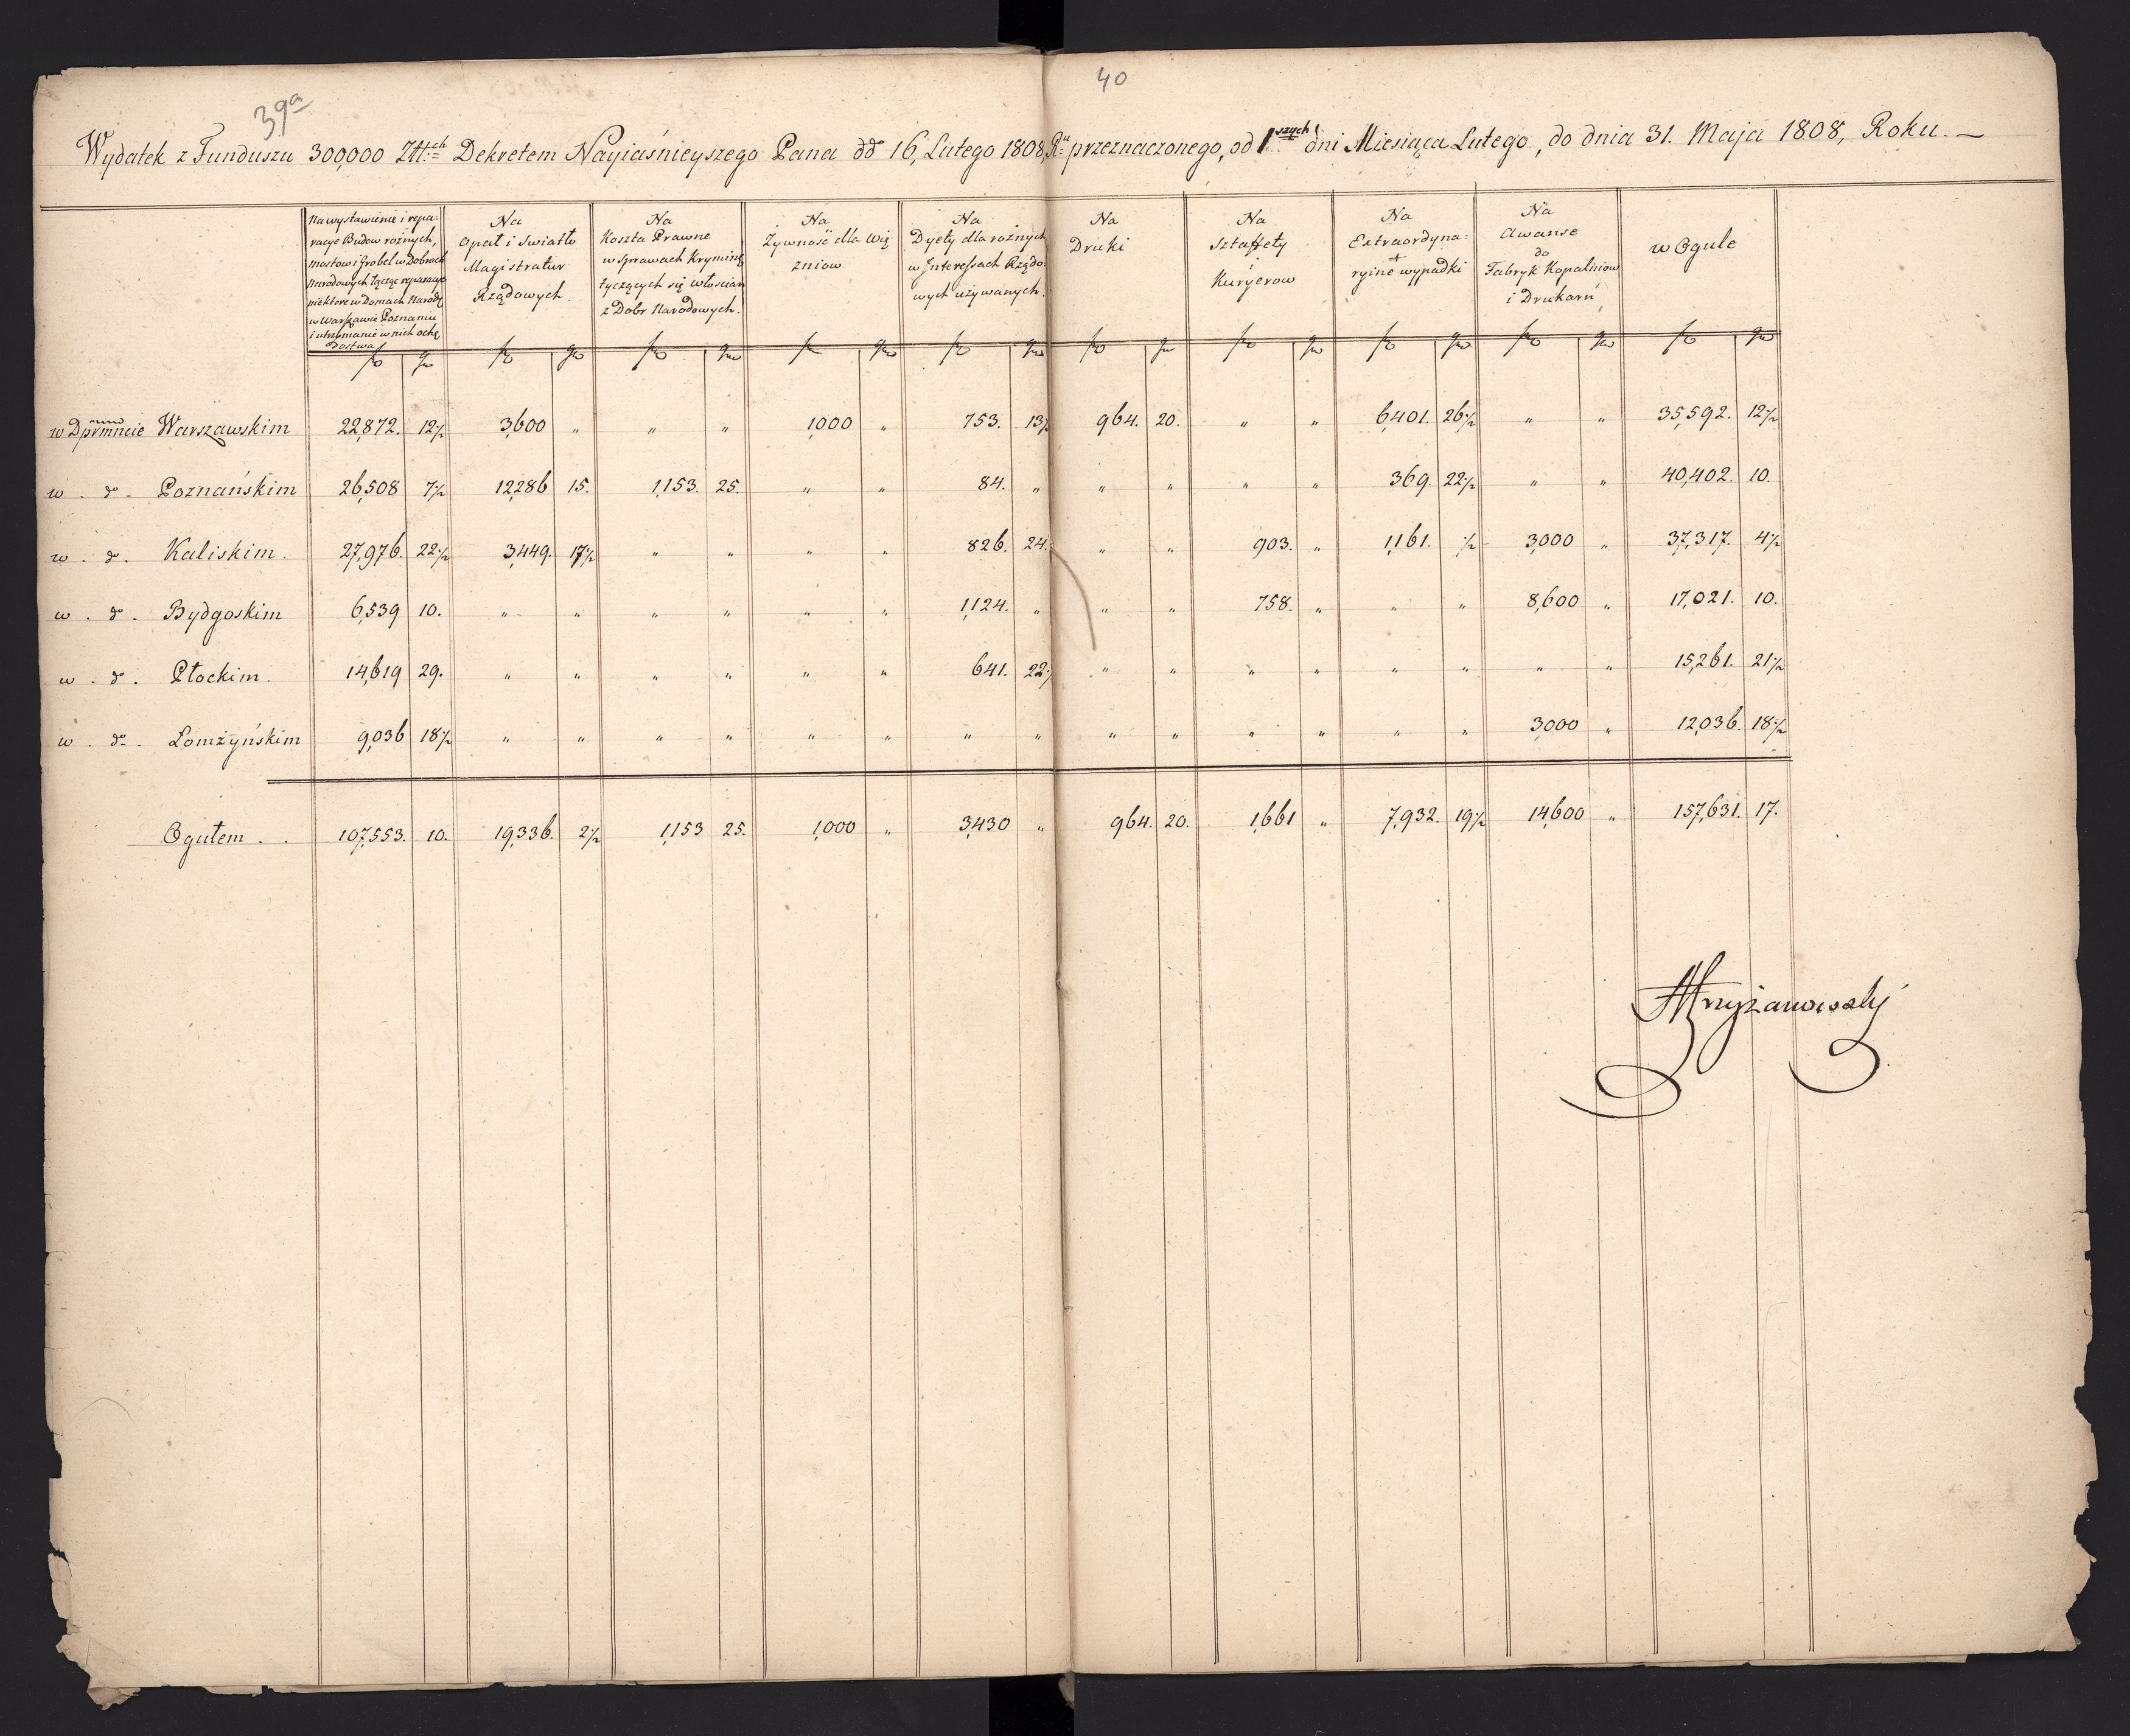 39a
40
Wydatek z Funduszu 300,000 Złł:ch Dekretem Nayiaśnieyszego Pana dd 16, Lutego 1808 Ru przeznaczonego, od 1szych dni Miesiąca Lutego, do dnia 31. Maja 1808, Roku. —
Na wystawienie i repa:
racye Budow rożnych,
Mostow i Grobel w Dobrach
Narodowych łącząc reparacye
niektore w Domach Narod:
w Warszawie Poznaniu
i utrzymanie w nich ochę
dostwa
Na
Opał i Swiatło
Magistratur
Rządowych.
Na
Koszta Prawne
w Sprawach Krymin:
tyczących się włościan
z Dobr Narodowych.
Na
Żywność dla Wię
zniow
Na
Dyety dla rożnych
w Interessach Rządo:
wych używanych.
Na
Druki
Na
Sztaffety
i
Kuryerow
Na
Extraordyna:
ryine wypadki
Na
Awanse
do
Fabryk Kopalniow
i Drukarń
w Ogule
fl gr fl gr fl gr fl gr fl gr fl gr fl gr fl gr fl gr fl gr
w Dprmncie Warszawskim 22,872. 12½ 3,600 " " " 1,000 " 753. 13½ 964. 20. " " 6,401. 26½ " " 35,592. 12½
w . do . Poznańskim 26,508 7½ 12,286 15. 1,153. 25. " " 84. " " " " " 369. 22½ " " 40,402. 10.
w . do . Kaliskim. 27,976. 22½ 3,449. 17½ " " " " 826. 24. " " 903. " 1,161. ½ 3,000 " 37,317. 4½
w . do . Bydgoskim 6,539 10. " " " " " " 1,124. " " " 758. " " " 8,600 " 17,021. 10.
w . do . Płockim. 14,619 29. " " " " " " 641. 22½ " " " " " " " " 15,261. 21½
w . do . Lomżyńskim 9,036 18½ " " " " " " " " " " " " " " 3,000 " 12,036. 18½
Ogułem . . 107,553. 10. 19,336. 2½ 1,153 25. 1,000 " 3,430 " 964. 20. 1,661 " 7,932. 19½ 14,600 " 157,631. 17.